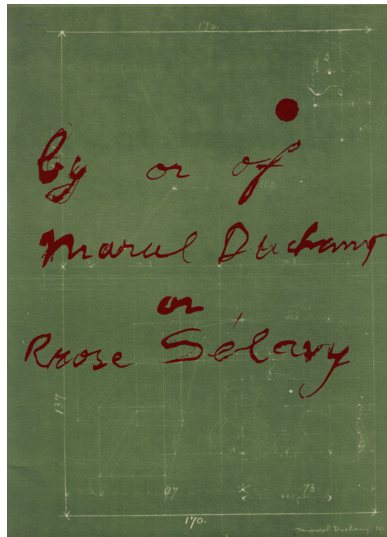 170.
by or of
Marcel Duchamp
or
Rrose Sélavy
137
97 73
170.
marcel Duchamp